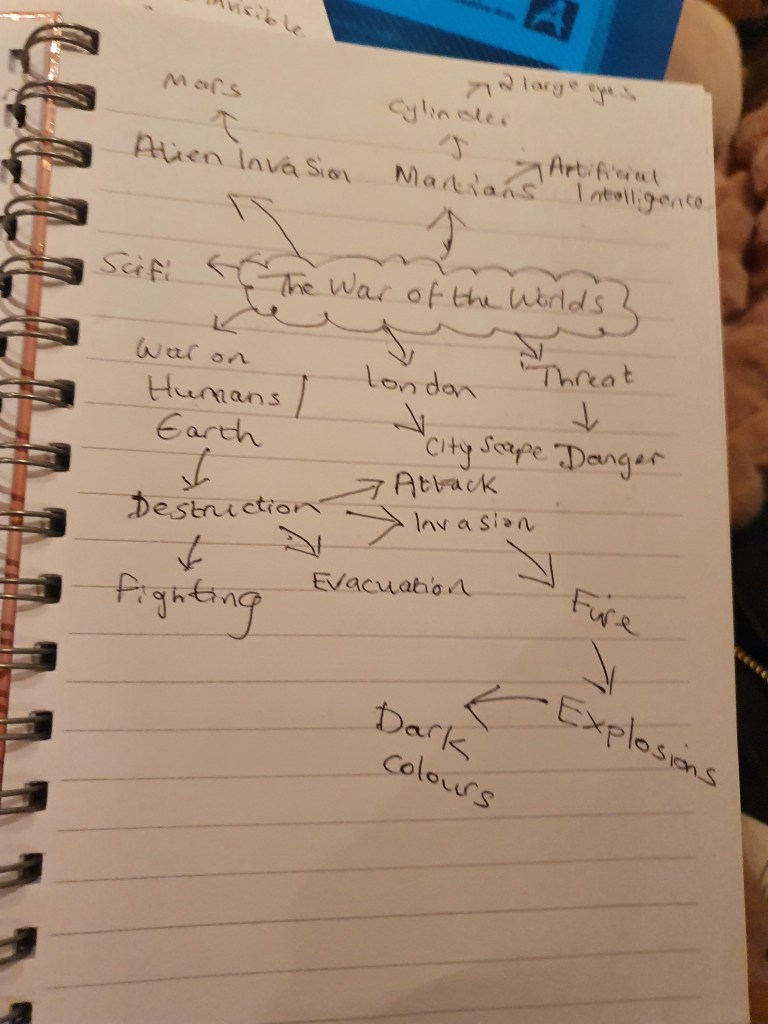 invisible.
Mars
2 large eyes
Cylinder
Alien Invasion
Martians
Artificial
Intelligence
Scifi
The War of the Worlds
War on
Humans/
Earth
London
Threat
City scape
Danger
Destruction
Attack
Invasion
Fighting
Evacuation
Fire
Explosions
Dark
colours